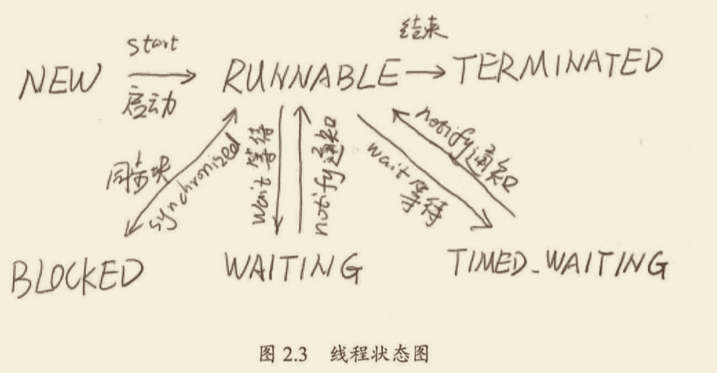 start
结束
NEW
RUNNABLE
TERMINATED
启动
同步块
synchronized
wait 等待
notify通知
wait 等待
notify通知
BLOCKED
WAITING
TIMED_WAITING
图 2.3 线程状态图